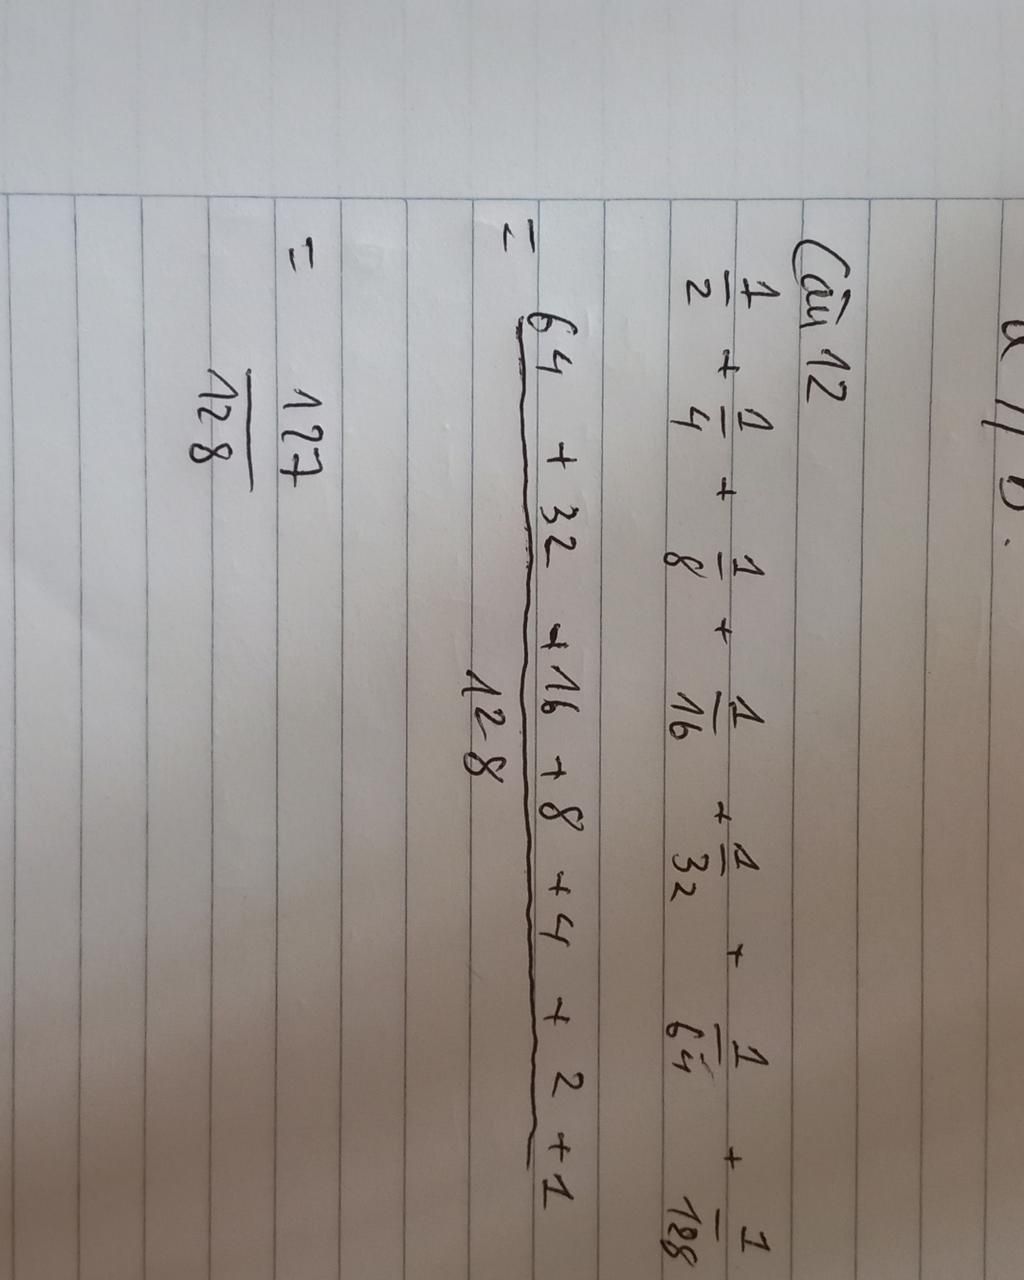 a // b.
Câu 12
1/2 + 1/4 + 1/8 + 1/16 + 1/32 + 1/64 + 1/128
= (64 + 32 + 16 + 8 + 4 + 2 + 1)/128
= 127/128